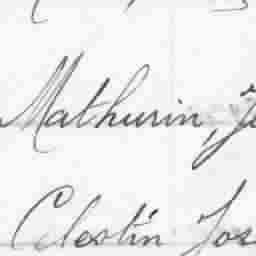 Mathurin, Je
Celestin Jos